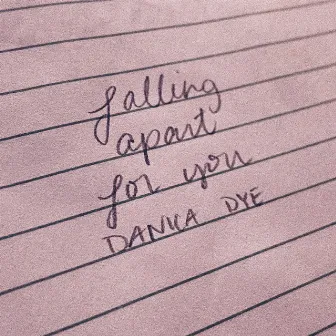 falling
apart
for you
DANIKA DYE